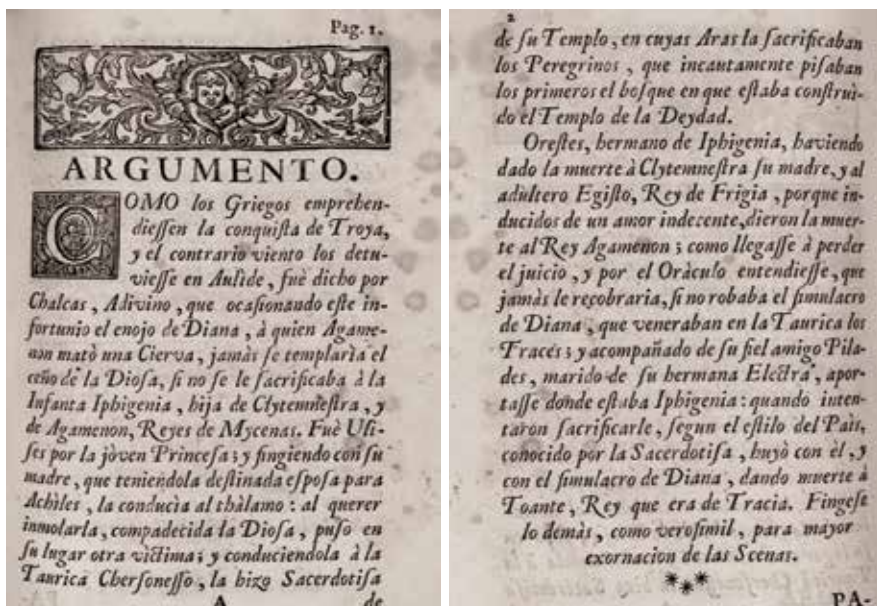 Pag. 1.
ARGUMENTO.
COMO los Griegos emprehen-
diessen la conquista de Troya,
y el contrario viento los detu-
viesse en Aulide, fuè dicho por
Chalcas, Adivino, que ocasionando este in-
fortunio el enojo de Diana, à quien Agame-
non matò una Cierva, jamàs se templarìa el
ceño de la Diosa, si no se le sacrificaba à la
Infanta Iphigenia, hija de Clytemnestra, y
de Agamenon, Reyes de Mycenas. Fuè Uli-
ses por la jòven Princesa; y fingiendo con su
madre, que teniendola destinada esposa para
Achîles, la conducìa al thàlamo: al querer
inmolarla, compadecida la Diosa, puso en
su lugar otra vìctima; y conduciendola à la
Taurica Chersonesso, la hizo Sacerdotisa
A
de
2
de su Templo, en cuyas Aras la sacrificaban
los Peregrinos, que incautamente pisaban
los primeros el bosque en que estaba construi-
do el Templo de la Deydad.
Orestes, hermano de Iphigenia, haviendo
dado la muerte à Clytemnestra su madre, y al
adultero Egisto, Rey de Frigia, porque in-
ducidos de un amor indecente, dieron la muer-
te al Rey Agamenon; como llegasse à perder
el juicio, y por el Oràculo entendiesse, que
jamàs le recobraria, si no robaba el simulacro
de Diana, que veneraban en la Taurica los
Traces; y acompañado de su fiel amigo Pila-
des, marido de su hermana Electra, apor-
tasse donde estaba Iphigenia: quando inten-
taron sacrificarle, segun el estilo del Paìs,
conocido por la Sacerdotisa, huyò con èl, y
con el simulacro de Diana, dando muerte à
Toante, Rey que era de Tracia. Fingese
lo demàs, como verosimil, para mayor
exornacion de las Scenas.
PA-